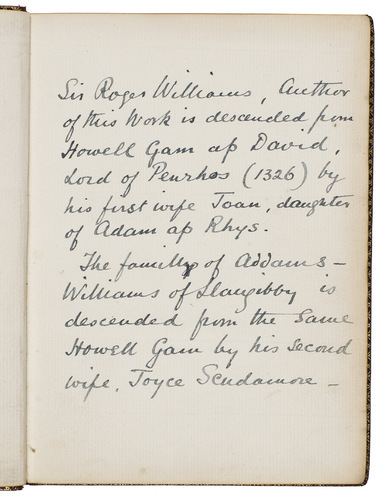 Sir Roger Williams, Author
of this Work is descended from
Howell Gam ap David,
Lord of Penrhos (1326) by
his first wife Joan, daughter
of Adam ap Rhys.
The family of Addams-
Williams of Llangibby is
descended from the same
Howell Gam by his second
wife, Joyce Scudamore -